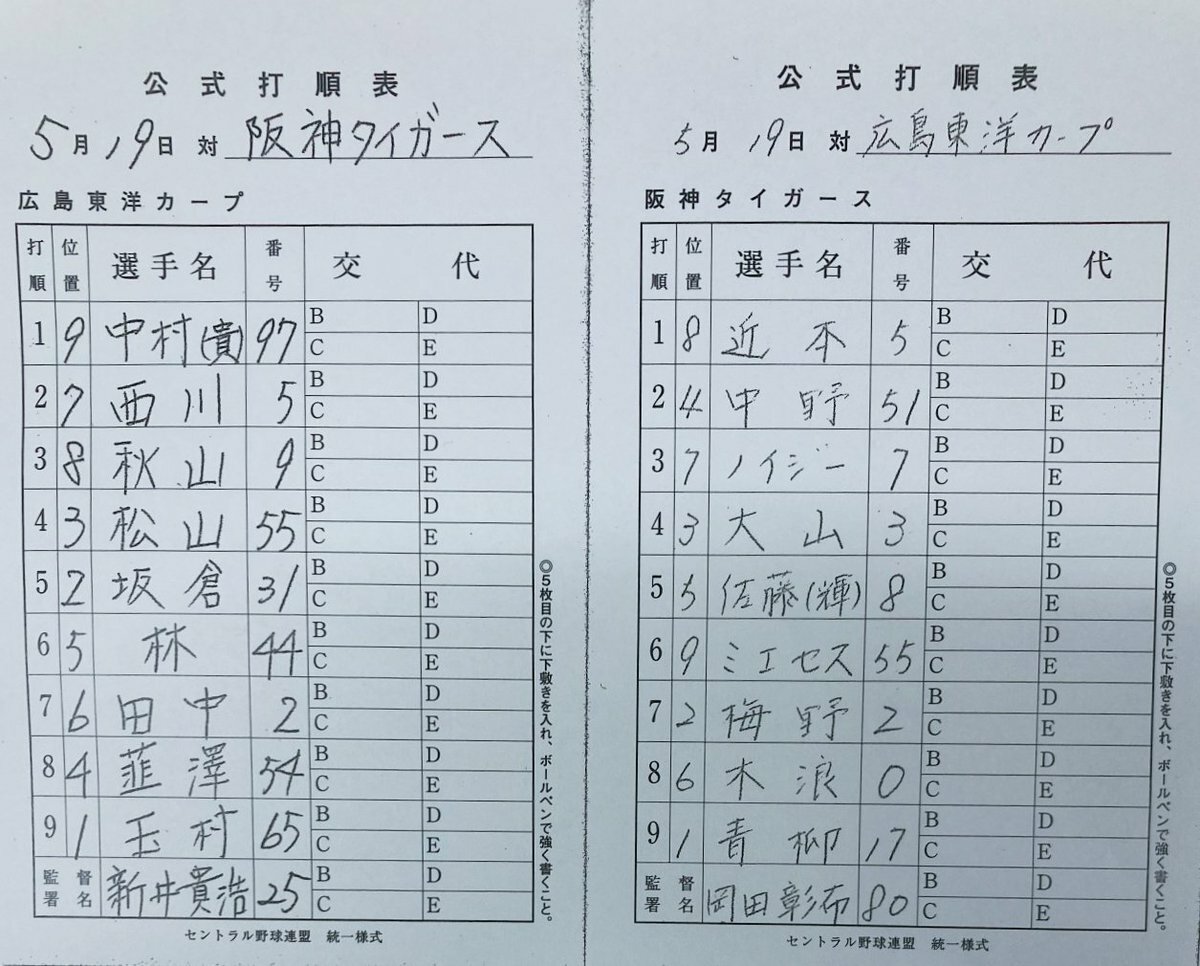 公式打順表
5月19日 対 阪神タイガース
広島東洋カープ
打順 位置 選手名 番号 交代
1 9 中村(貴) 97 B D C E
2 7 西川 5 B D C E
3 8 秋山 9 B D C E
4 3 松山 55 B D C E
5 2 坂倉 31 B D C E
6 5 林 44 B D C E
7 6 田中 2 B D C E
8 4 韮澤 54 B D C E
9 1 玉村 65 B D C E
監督署名 新井貴浩 25 B D C E
◎5枚目の下に下敷きを入れ、ボールペンで強く書くこと。
セントラル野球連盟 統一様式
公式打順表
5月19日 対 広島東洋カープ
阪神タイガース
打順 位置 選手名 番号 交代
1 8 近本 5 B D C E
2 4 中野 51 B D C E
3 7 ノイジー 7 B D C E
4 3 大山 3 B D C E
5 5 佐藤(輝) 8 B D C E
6 9 ミエセス 55 B D C E
7 2 梅野 2 B D C E
8 6 木浪 0 B D C E
9 1 青柳 17 B D C E
監督署名 岡田彰布 80 B D C E
◎5枚目の下に下敷きを入れ、ボールペンで強く書くこと。
セントラル野球連盟 統一様式